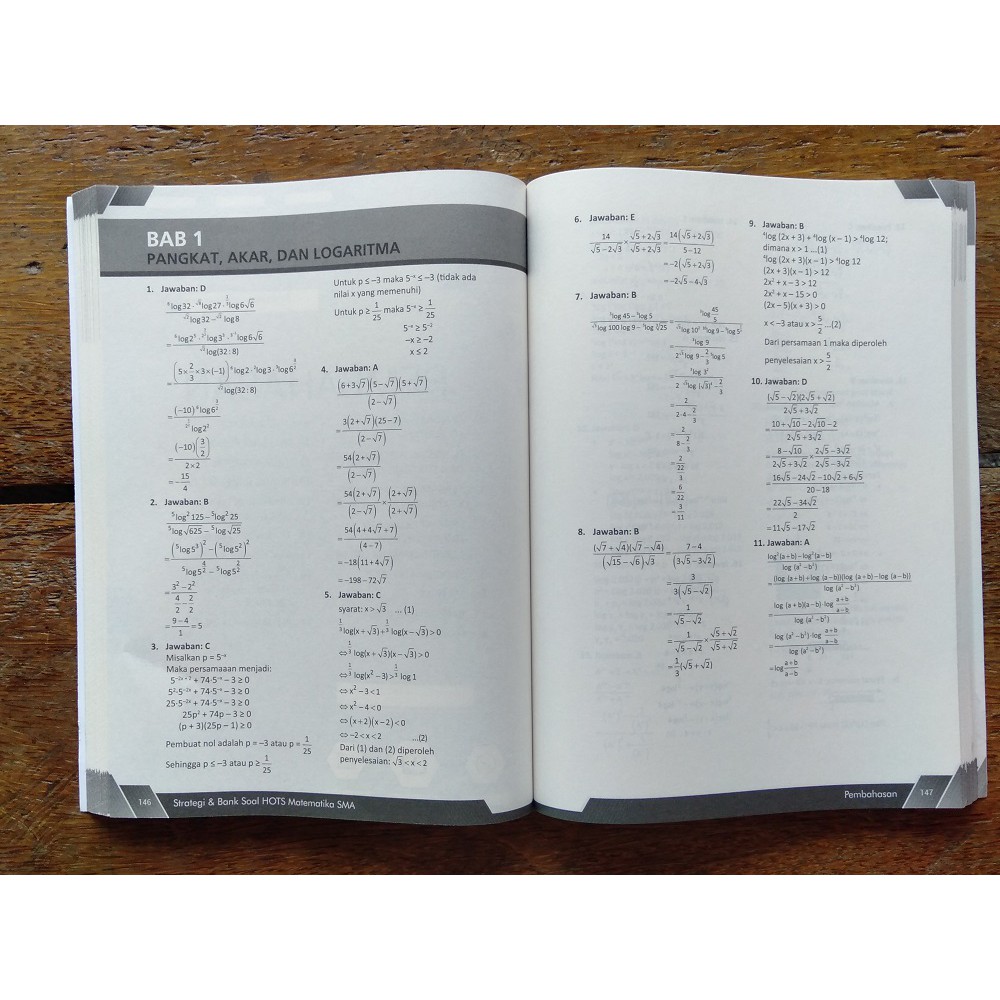 BAB 1
PANGKAT, AKAR, DAN LOGARITMA
1. Jawaban: D
= (5×2/3×3×(−1))
= −15/4
2. Jawaban: B
⁵log²125−⁵log²25
⁵log√625−⁵log√25
= (⁵log5³)²−(⁵log5²)²
= (3²−2²)/(4/2−2/2)
= (9−4)/1 = 5
3. Jawaban: C
Misalkan p = 5⁻ˣ
Maka persamaaan menjadi:
5⁻²ˣ⁺² + 74·5⁻ˣ − 3 ≥ 0
5²·5⁻²ˣ + 74·5⁻ˣ − 3 ≥ 0
25·5⁻²ˣ + 74·5⁻ˣ − 3 ≥ 0
25p² + 74p − 3 ≥ 0
(p + 3)(25p − 1) ≥ 0
Pembuat nol adalah p = −3 atau p = 1/25
Sehingga p ≤ −3 atau p ≥ 1/25
Untuk p ≤ −3 maka 5⁻ˣ ≤ −3 (tidak ada
nilai x yang memenuhi)
Untuk p ≥ 1/25 maka 5⁻ˣ ≥ 1/25
5⁻ˣ ≥ 5⁻²
−x ≥ −2
x ≤ 2
4. Jawaban: A
(6+3√7)(5−√7)(5+√7)/(2−√7)
= 3(2+√7)(25−7)/(2−√7)
= 54(2+√7)/(2−√7)
= 54(2+√7)/(2−√7) × (2+√7)/(2+√7)
= 54(4+4√7+7)/(4−7)
= −18(11+4√7)
= −198−72√7
5. Jawaban: C
syarat: x > √3 ... (1)
¹/³log(x+√3)+¹/³log(x−√3) > 0
⇔ ¹/³log(x+√3)(x−√3) > 0
⇔ ¹/³log(x²−3) > ¹/³log 1
⇔ x²−3 < 1
⇔ x²−4 < 0
⇔ (x+2)(x−2) < 0
⇔ −2 < x < 2 ...(2)
Dari (1) dan (2) diperoleh
penyelesaian: √3 < x < 2
146 Strategi & Bank Soal HOTS Matematika SMA
6. Jawaban: E
14/(√5−2√3) × (√5+2√3)/(√5+2√3) = 14(√5+2√3)/(5−12)
= −2(√5+2√3)
= −2√5−4√3
7. Jawaban: B
= 2/(2·4−2/3)
= 2/(8−2/3)
= 2/(22/3)
= 6/22
= 3/11
8. Jawaban: B
(√7+√4)(√7−√4)/((√15−√6)√3) = (7−4)/(3√5−3√2)
= 3/(3(√5−√2))
= 1/(√5−√2)
= 1/(√5−√2) × (√5+√2)/(√5+√2)
= 1/3(√5+√2)
9. Jawaban: B
⁴log (2x + 3) + ⁴log (x − 1) > ⁴log 12;
dimana x > 1 ...(1)
⁴log (2x + 3)(x − 1) > ⁴log 12
(2x + 3)(x − 1) > 12
2x² + x − 3 > 12
2x² + x − 15 > 0
(2x − 5)(x + 3) > 0
x < −3 atau x > 5/2 ...(2)
Dari persamaan 1 maka diperoleh
penyelesaian x > 5/2
10. Jawaban: D
(√5−√2)(2√5+√2)/(2√5+3√2)
= (10+√10−2√10−2)/(2√5+3√2)
= (8−√10)/(2√5+3√2) × (2√5−3√2)/(2√5−3√2)
= (16√5−24√2−10√2+6√5)/(20−18)
= (22√5−34√2)/2
= 11√5−17√2
11. Jawaban: A
(log²(a+b)−log²(a−b))/log (a²−b²)
= (log (a+b)+log (a−b))(log (a+b)−log (a−b))/log (a²−b²)
= log (a+b)(a−b)·log (a+b)/(a−b) / log (a²−b²)
= log (a²−b²)·log (a+b)/(a−b) / log (a²−b²)
= log (a+b)/(a−b)
Pembahasan 147